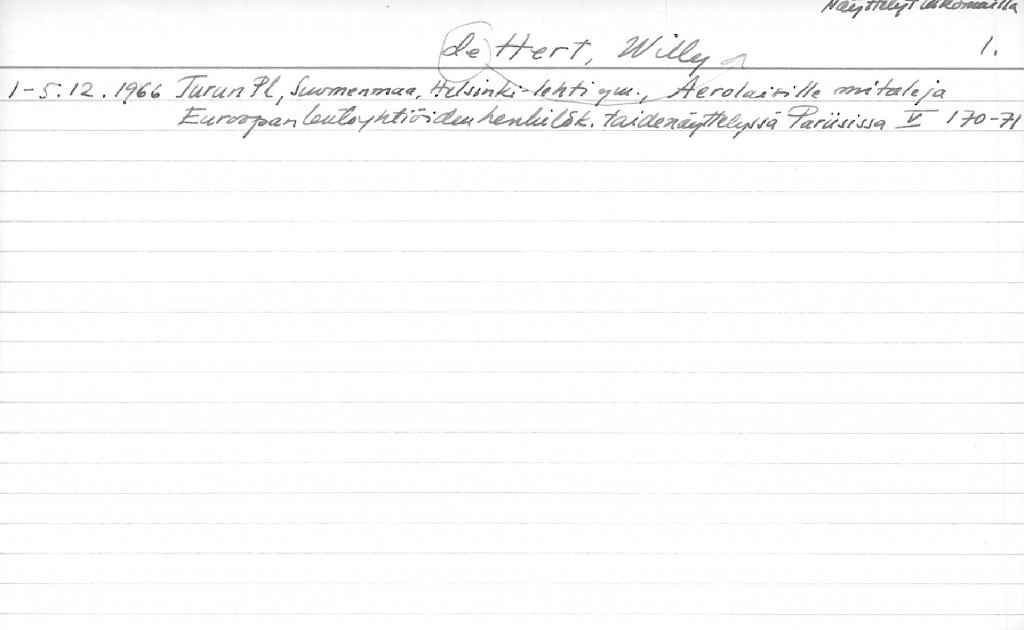 Näyttelyt ulkomailla
de Hert, Willy 1.
1-5.12.1966 Turun Pl, Suomenmaa, Helsinki-lehti ym., Aerolaisille mitaleja
Euroopan lentoyhtiöiden henkilök. taidenäyttelyssä Pariisissa V 170-71